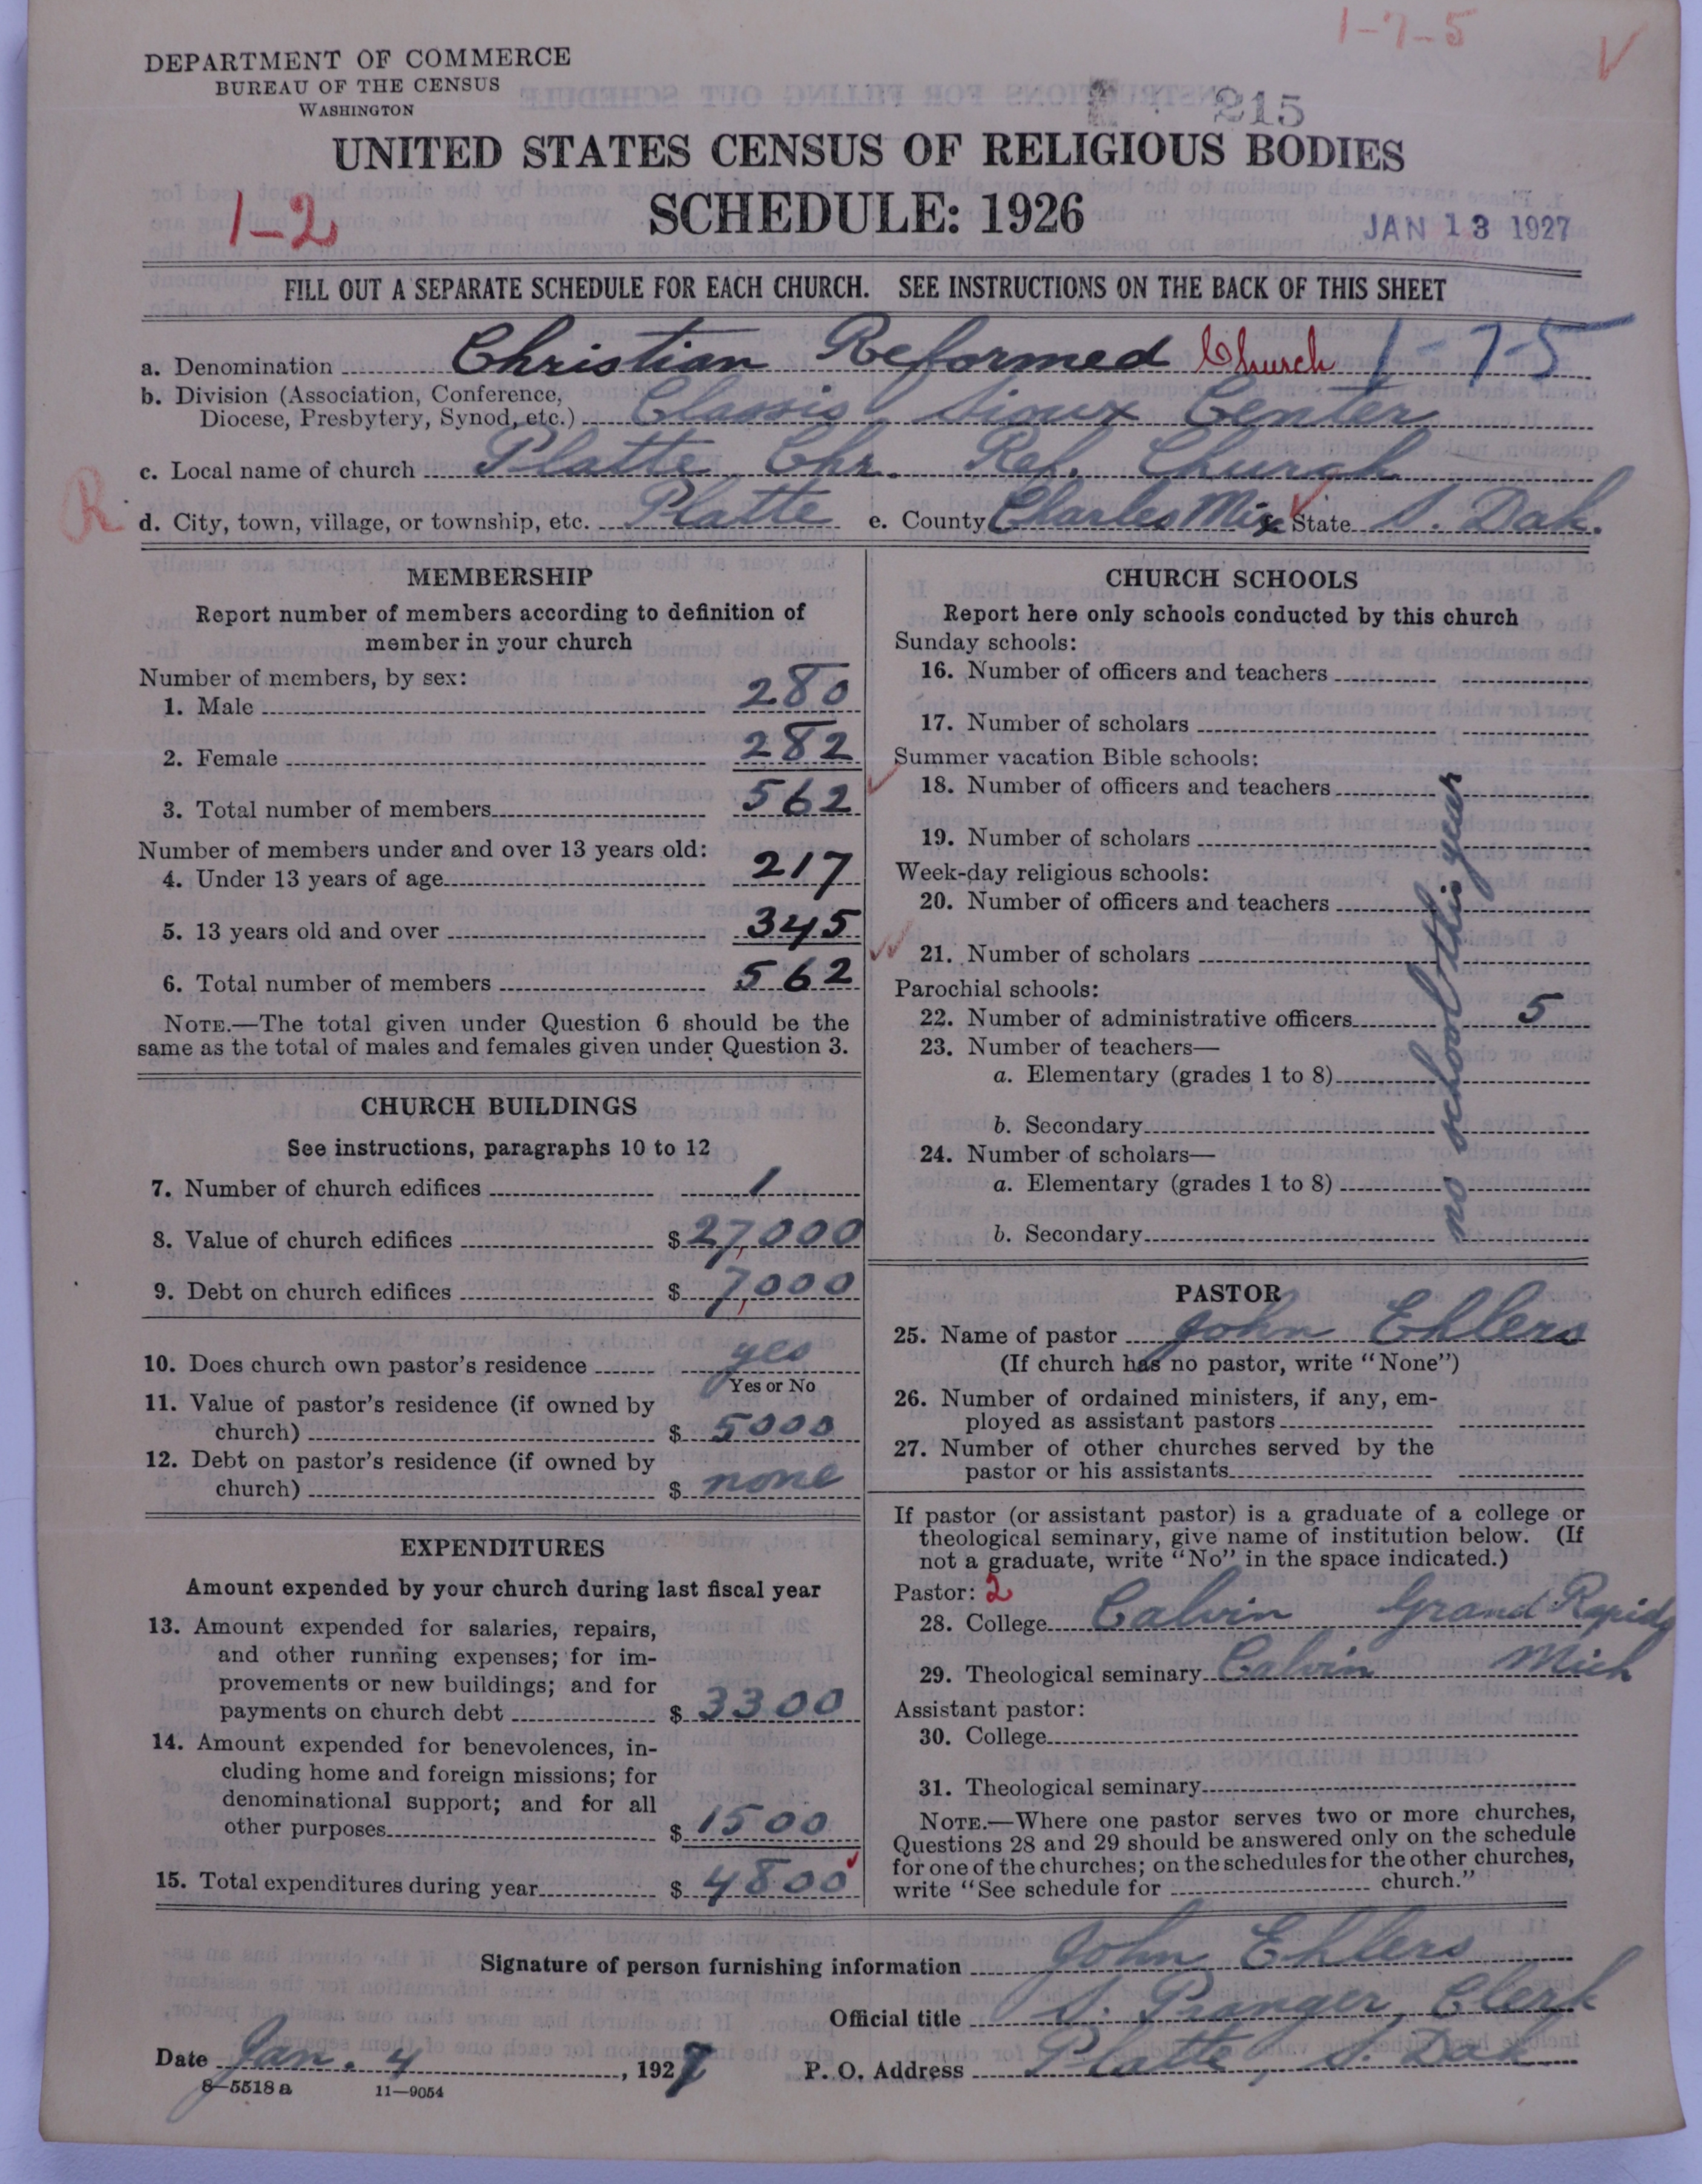 1-7-5
DEPARTMENT OF COMMERCE
BUREAU OF THE CENSUS
WASHINGTON
215
UNITED STATES CENSUS OF RELIGIOUS BODIES
1-2
SCHEDULE: 1926
JAN 13 1927
FILL OUT A SEPARATE SCHEDULE FOR EACH CHURCH. SEE INSTRUCTIONS ON THE BACK OF THIS SHEET
a. Denomination Christian Reformed Church 1-7-5
b. Division (Association, Conference,
Diocese, Presbytery, Synod, etc.) Classis Sioux Center
c. Local name of church Platte Chr. Ref. Church
R
d. City, town, village, or township, etc. Platte e. County Charles Mix State S. Dak.
MEMBERSHIP
Report number of members according to definition of
member in your church
Number of members, by sex:
1. Male 280
2. Female 282
3. Total number of members 562
Number of members under and over 13 years old:
4. Under 13 years of age 217
5. 13 years old and over 345
6. Total number of members 562
NOTE.—The total given under Question 6 should be the
same as the total of males and females given under Question 3.
CHURCH BUILDINGS
See instructions, paragraphs 10 to 12
7. Number of church edifices 1
8. Value of church edifices $ 27,000
9. Debt on church edifices $ 7,000
10. Does church own pastor's residence yes
Yes or No
11. Value of pastor's residence (if owned by
church) $ 5000
12. Debt on pastor's residence (if owned by
church) $ none
EXPENDITURES
Amount expended by your church during last fiscal year
13. Amount expended for salaries, repairs,
and other running expenses; for im-
provements or new buildings; and for
payments on church debt $ 3300
14. Amount expended for benevolences, in-
cluding home and foreign missions; for
denominational support; and for all
other purposes $ 1500
15. Total expenditures during year $ 4800
CHURCH SCHOOLS
Report here only schools conducted by this church
Sunday schools:
16. Number of officers and teachers
17. Number of scholars
Summer vacation Bible schools:
18. Number of officers and teachers
19. Number of scholars
Week-day religious schools:
20. Number of officers and teachers
21. Number of scholars
Parochial schools:
22. Number of administrative officers 5
23. Number of teachers—
a. Elementary (grades 1 to 8)
b. Secondary
24. Number of scholars—
a. Elementary (grades 1 to 8)
b. Secondary
no school this year
PASTOR
25. Name of pastor John Ehlers
(If church has no pastor, write "None")
26. Number of ordained ministers, if any, em-
ployed as assistant pastors
27. Number of other churches served by the
pastor or his assistants
If pastor (or assistant pastor) is a graduate of a college or
theological seminary, give name of institution below. (If
not a graduate, write "No" in the space indicated.)
Pastor: 2
28. College Calvin Grand Rapids
29. Theological seminary Calvin Mich
Assistant pastor:
30. College
31. Theological seminary
NOTE.—Where one pastor serves two or more churches,
Questions 28 and 29 should be answered only on the schedule
for one of the churches; on the schedules for the other churches,
write "See schedule for church."
Signature of person furnishing information John Ehlers
Official title S. Pranger, Clerk
Date Jan. 4, 1927 P. O. Address Platte, S. Dak
8-5518 a 11-9054